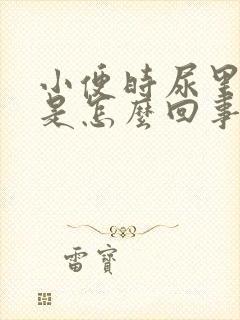 小便時尿里
是怎麼回事
雷寶